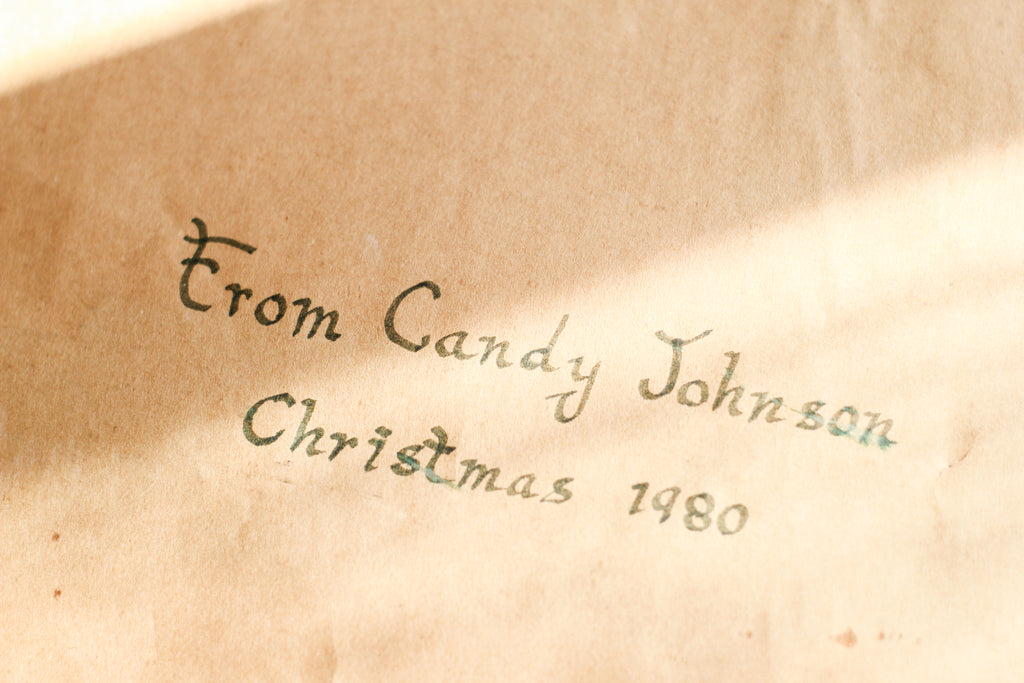 From Candy Johnson
Christmas 1980